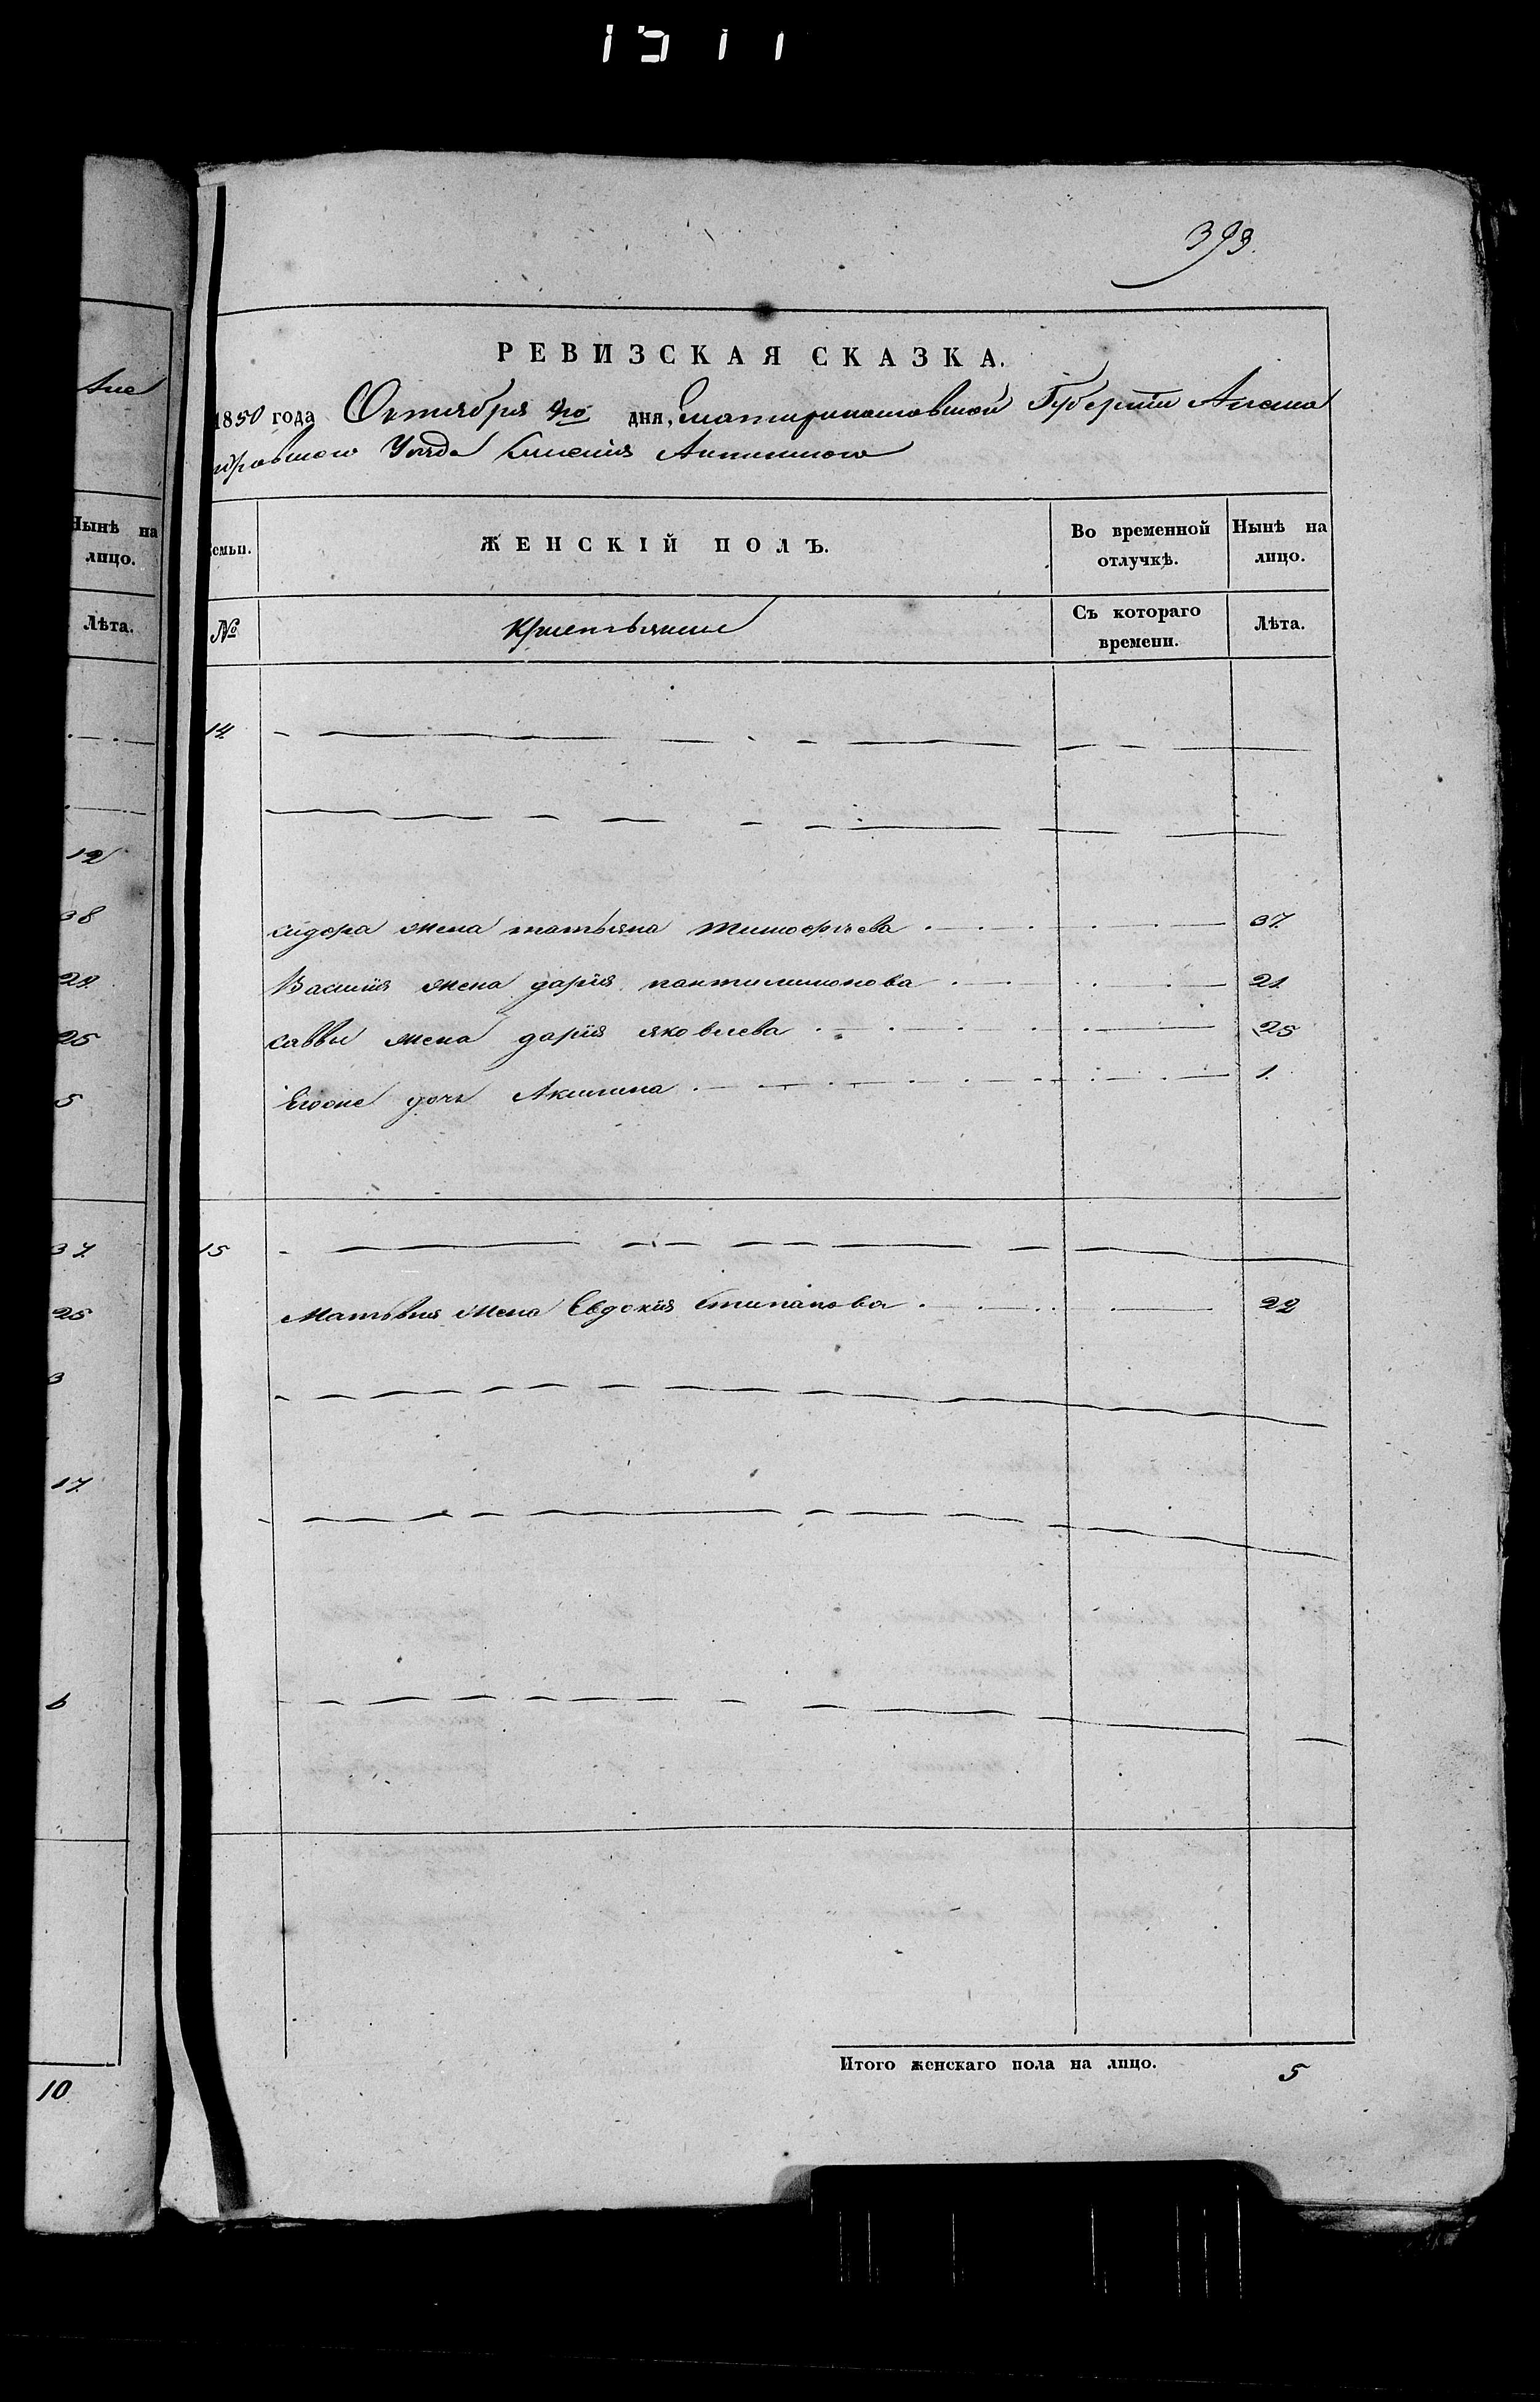 393.
РЕВИЗСКАЯ СКАЗКА.
1850 года Октября 4го дня, Екатеринославской Губернии Алекса
ндровского Уезда Имения
Нынѣ на
лицо.
Лѣта.
емьи.
ЖЕНСКІЙ ПОЛЪ.
Во временной
отлучкѣ.
Нынѣ на
лицо.
№
Крестьяние
Съ котораго
времени.
Лѣта.
14.
12
38
сидора жена татьяна тимофѣева 37.
28.
Василия жена дария пантилимонова 21.
25
саввы жена дария яковлева 25
5
Егоже дочь Акилина 1.
37.
15
25
Матвѣя жена Евдокия Стипанова 22
3
17.
6
10.
Итого женскаго пола на лицо. 5